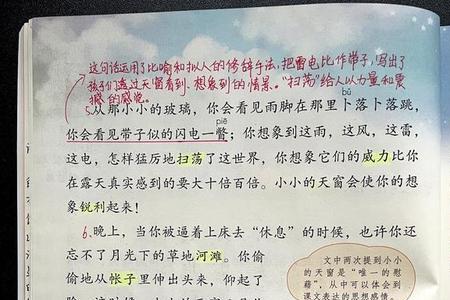 这句话运用了比喻和拟人的修辞手法,把雷电比作带子,写出了
孩子们透过天窗看到、想象到的情景。"扫荡"给人以力量和震
撼的感觉。
bǔ
5.从那小小的玻璃，你会看见雨脚在那里卜落卜落跳，
piē
你会看见带子似的闪电一瞥；你想象到这雨，这风，这雷，
这电，怎样猛厉地扫荡了这世界，你想象它们的威力比你
在露天真实感到的要大十倍百倍。小小的天窗会使你的想
象锐利起来！
6.晚上，当你被逼着上床去“休息”的时候，也许你还
忘不了月光下的草地河滩。你偷
偷地从帐子里伸出头来，仰起了
文中两次提到小小
的天窗是“唯一的慰
藉”，从中可以体会到
课文表达的思想感情。